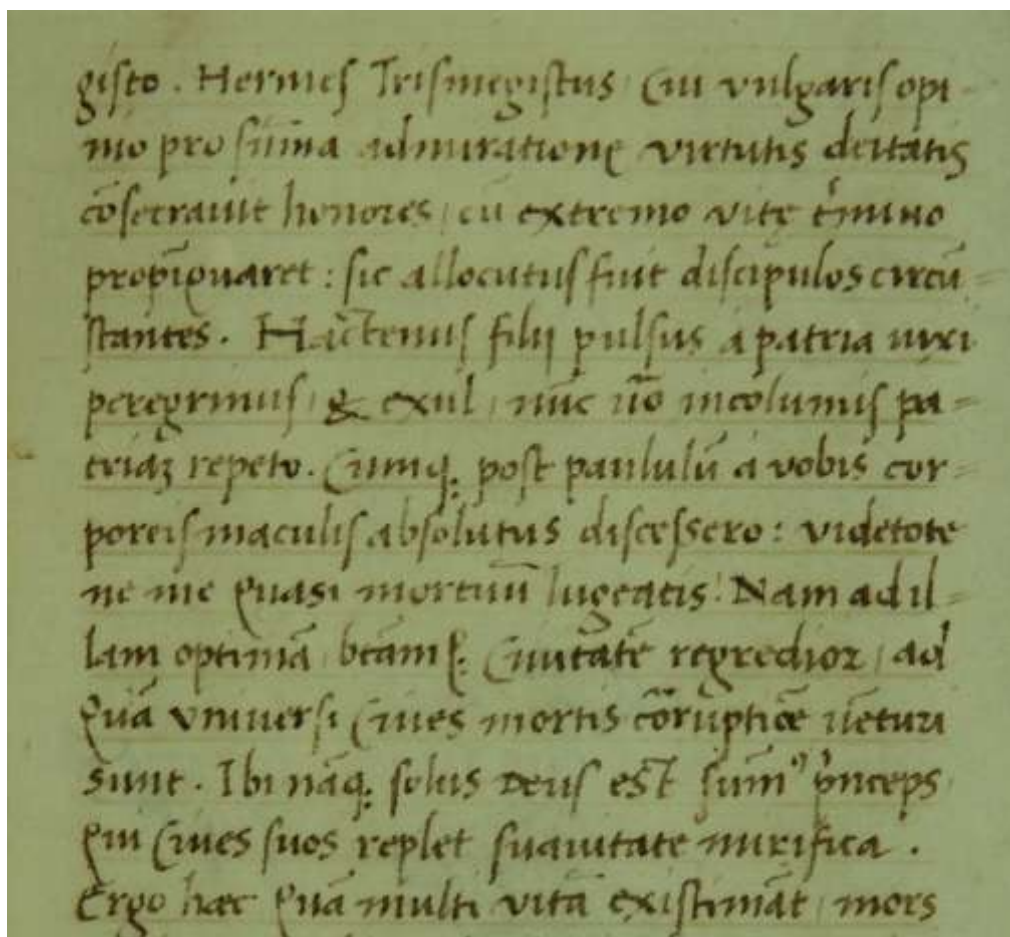 gisto. Hermes Trismegistus, Cui vulgaris opi-
nio pro sūma admiratione virtutis deitatis
cōsecravit honores, cū extremo vite t̄mino
propīquaret: sic allocutus fuit discipulos circū=
stantes. Hactenus filij pulsus a patria vixi
peregrinus, & exul, nūc v̄o incolumis pa=
triaȝ repeto. Cumq; post paululū a vobis cor=
poreis maculis absolutus discessero: videtote
ne me quasi mortuū lugeatis. Nam ad il=
lam optimā, beāmq; Civitatē regredior, ad
quā vniversi Cives mortis cōrruptiōe vēturi
sunt. Ibi nāq; solus Deus est sūmꝰ p̄nceps
qui Cives suos replet suavitate mirifica.
Ergo haec quā multi vitā existimāt, mors